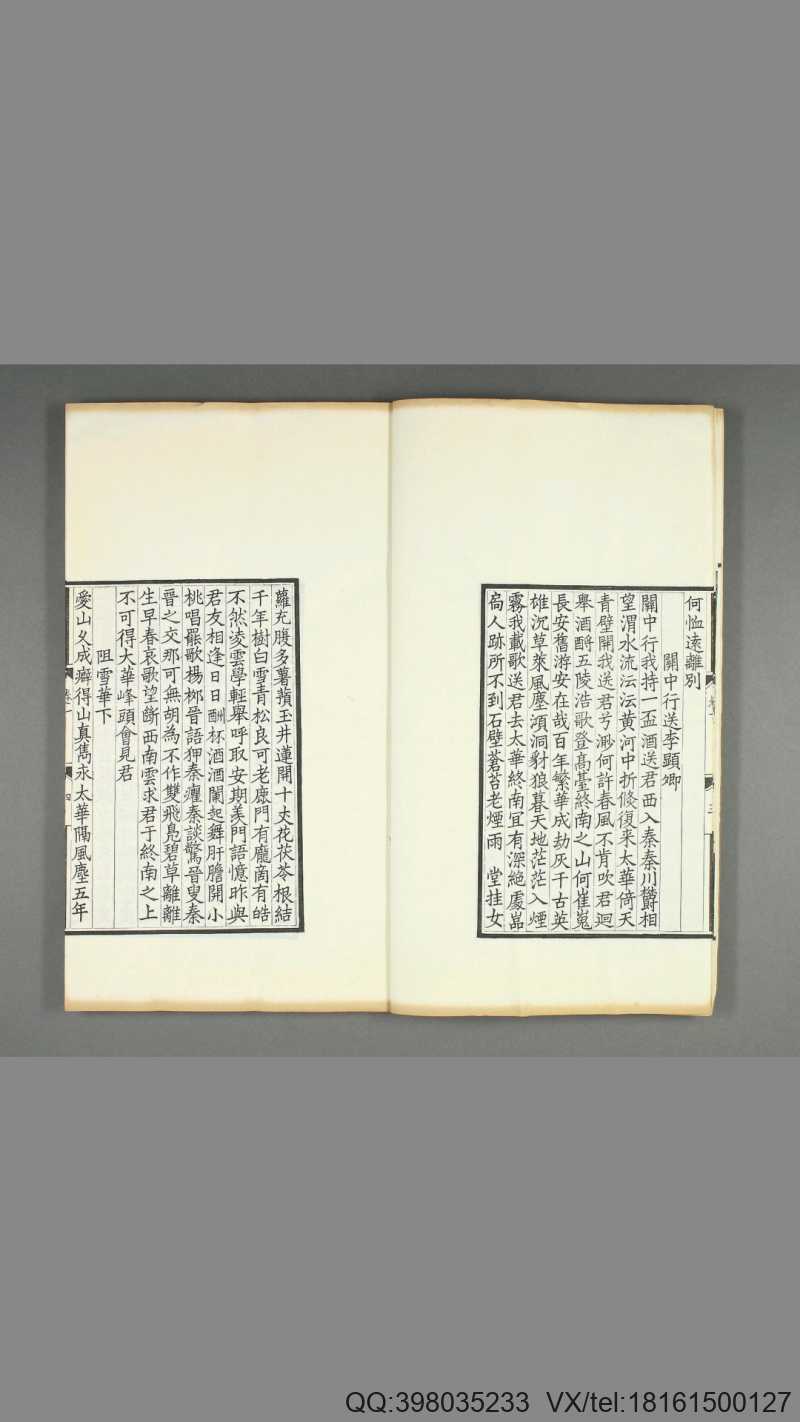 何恤遠離別
關中行送李顕卿
關中行我持一盃酒送君西入秦秦川鬱相
望渭水流沄沄黄河中折倐復来太華倚天
青壁開我送君兮渺何許春風不肯吹君迴
舉酒酹五陵浩歌登髙臺終南之山何崔嵬
長安舊游安在哉百年繁華成劫灰千古英
雄沉草萊風塵澒洞豺狼暮天地茫茫入煙
霧我載歌送君去太華終南宜有深絶處嵓
扃人跡所不到石壁蒼苔老煙雨 堂挂女
蘿充腹多薯蕷玉井蓮開十丈花茯苓根結
千年樹白雪青松良可老鹿門有龐商有皓
不然凌雲學輕舉呼取安期羡門語憶昨與
君友相逢日日酬杯酒酒闌起舞肝膽開小
桃唱罷歌楊栁晉語狎秦癯秦談驚晉叟秦
晉之交那可無胡為不作雙飛鳬碧草離離
生早春哀歌望斷西南雲求君于終南之上
不可得大華峰頭會見君
阻雪華下
愛山乆成癖得山真雋永太華隔風塵五年
三
四
QQ:398035233 VX/tel:18161500127